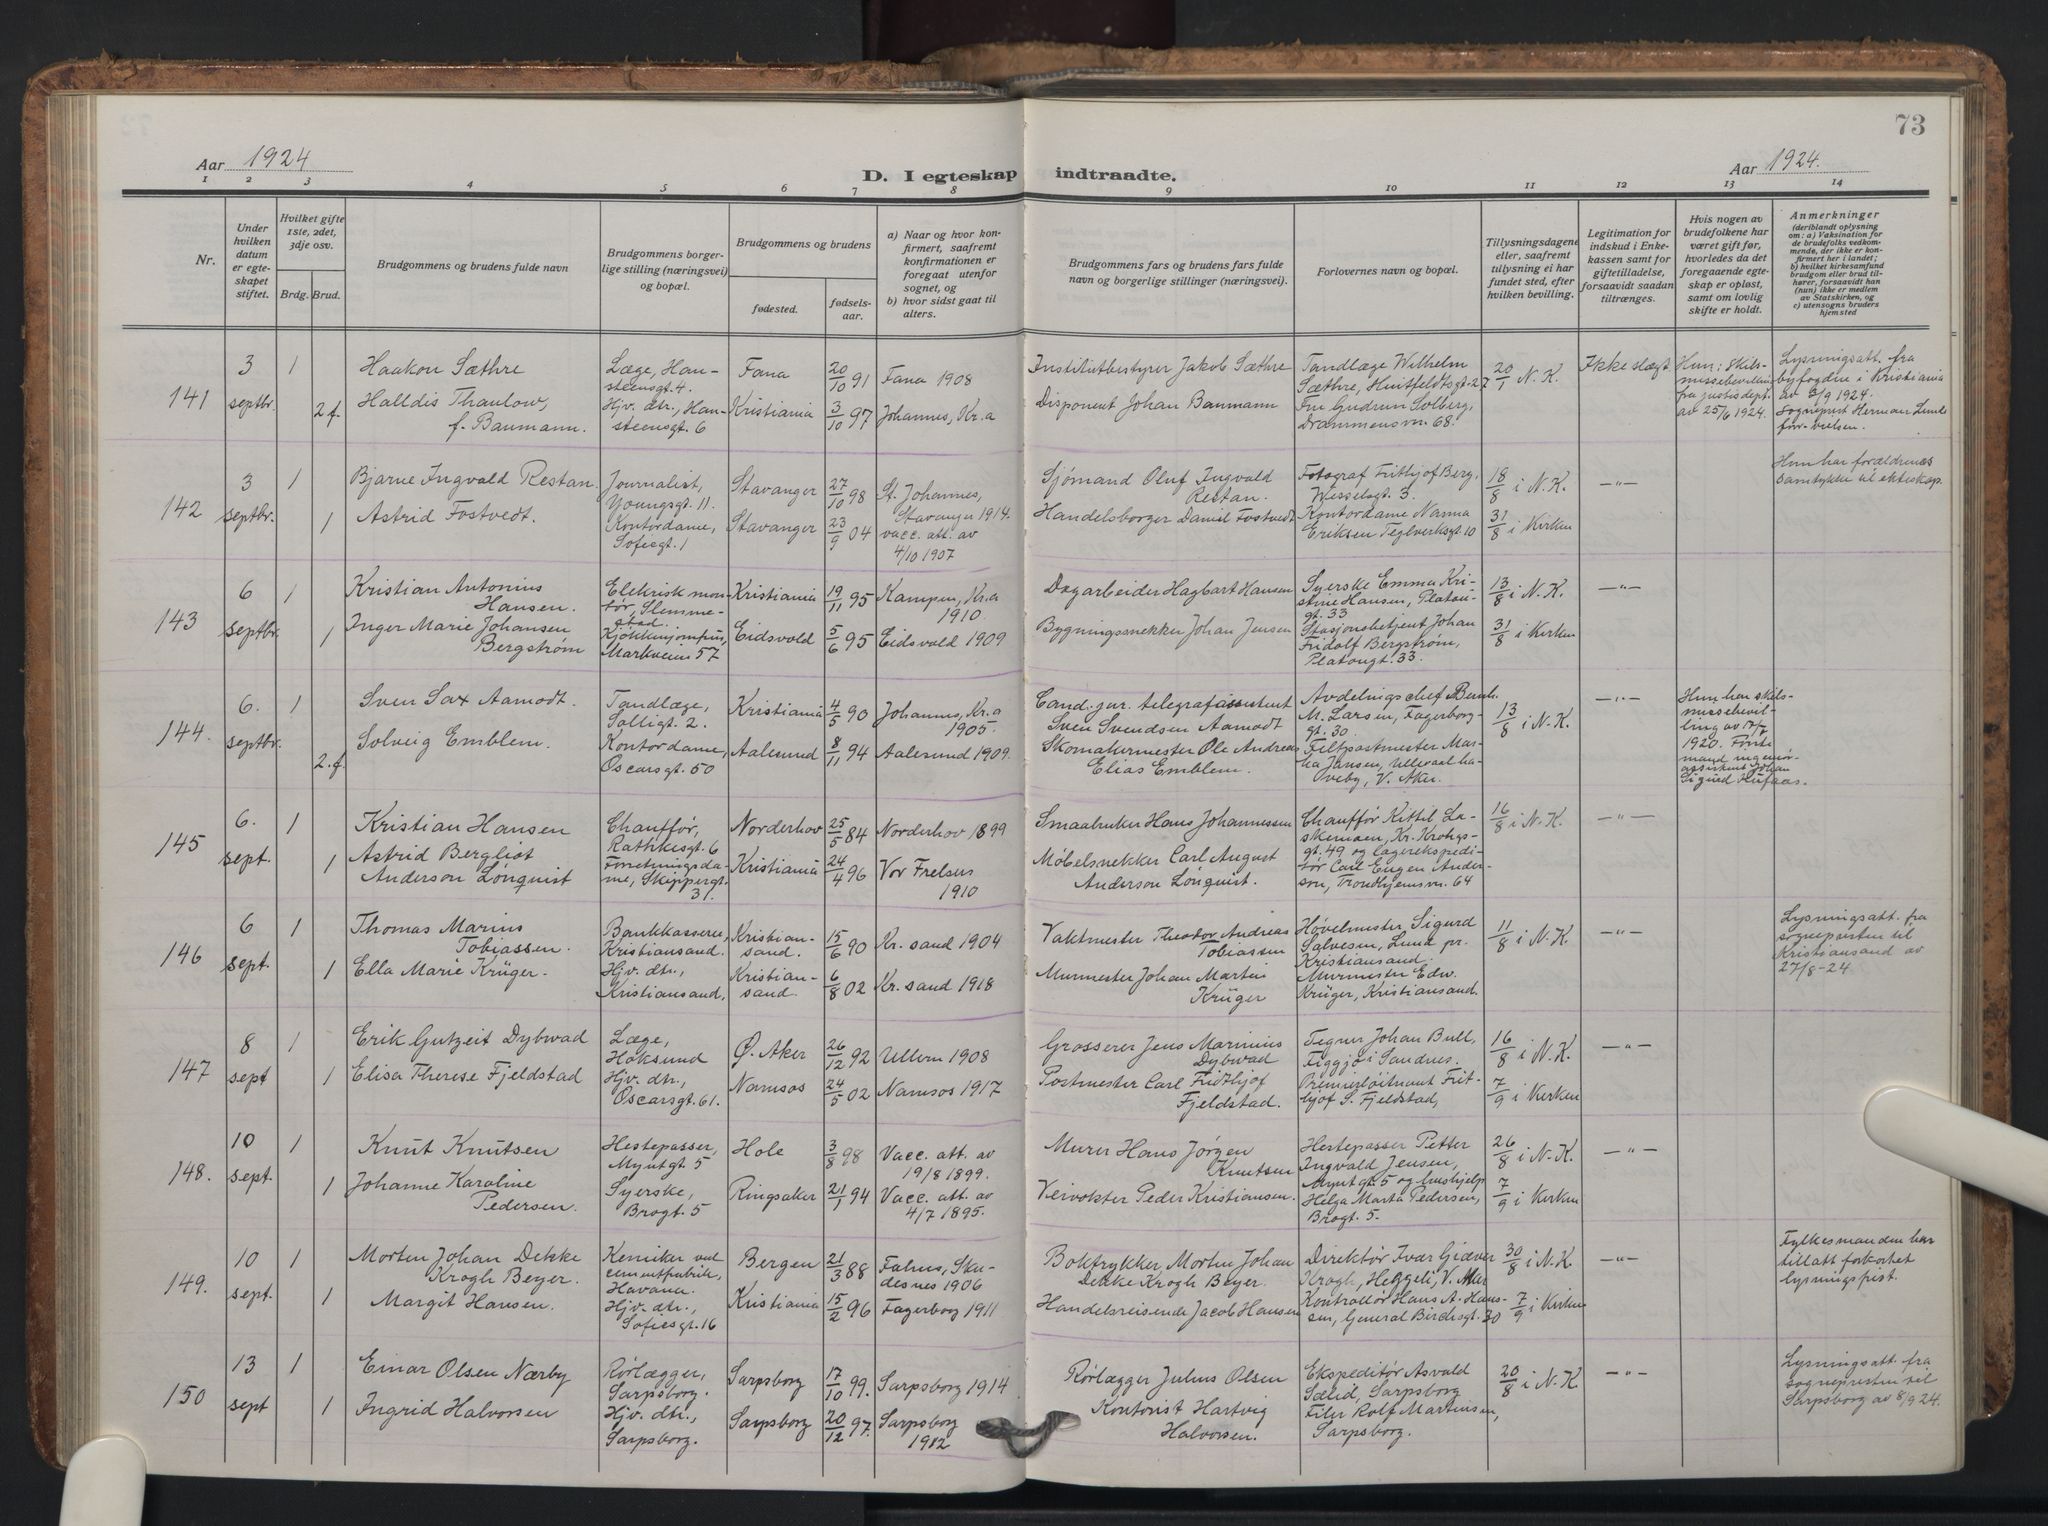 73
Aar 1924
D. I egteskap indtraadte.
Aar 1924.
1 2 3 4 5 6 7 8 9 10 11 12 13 14
Nr.
Under hvilken datum er egteskapet stiftet.
Hvilket gifte 1ste, 2det, 3dje osv.
Brdg. Brud.
Brudgommens og brudens fulde navn
Brudgommens borgerlige stilling (næringsvei) og bopæl.
Brudgommens og brudens
fødested.
fødselsaar.
a) Naar og hvor konfirmert, saafremt konfirmationen er foregaat utenfor sognet, og
b) hvor sidst gaat til alters.
Brudgommens fars og brudens fars fulde navn og borgerlige stillinger (næringsvei).
Forlovernes navn og bopæl.
Tillysningsdagene eller, saafremt tillysning ei har fundet sted, efter hvilken bevilling.
Legitimation for indskud i Enkekassen samt for giftetilladelse, forsaavidt saadan tiltrænges.
Hvis nogen av brudefolkene har været gift før, hvorledes da det foregaaende egteskap er opløst, samt om lovlig skifte er holdt.
Anmerkninger
(deriblandt oplysning om: a) Vaksination for de brudefolks vedkommende, der ikke er konfirmert her i landet; b) hvilket kirkesamfund brudgom eller brud tilhører, forsaavidt han (hun) ikke er medlem av Statskirken, og c) utensogns bruders hjemsted
141
3 septbr.
1
Haakon Sæthre
Læge, Hansteensgt. 4.
Fana
20/10 91
Fana 1908
Institutbestyrer Jakob Sæthre
Tandlæge Wilhelm Sæthre, Huitfeldtsgt. 27
20/1 N.K.
Ikke slægt
Hun: Skilsmissebevilling fra justisdept. av 25/6 1924.
Lysningsatt. fra byfogden i Kristiania av 3/9 1924. Sogneprest Herman Lunde
2 f.
Halldis Thaulow, f. Baumann.
Hjv. dtr., Hansteensgt. 6
Kristiania
3/10 97
Johannes, Kr.a
Disponent Johan Baumann
Fru Gudrun Solberg, Drammensvn. 68.
142
3 septbr.
1
Bjarne Ingvald Restan.
Journalist, Youngsgt. 11.
Stavanger
27/10 98
St. Johannes, Stavanger 1914.
Sjømand Oluf Ingvald Restan.
Fotograf Frithjof Berg, Wesselsgt. 3.
18/8 i N.K.
—"—
Hun har forældrenes samtykke til ekteskap.
1
Astrid Fostvedt.
Kontordame, Sofiesgt. 1
Stavanger
23/9 04
vacc. att. av 4/10 1907
Handelsborger Daniel Fostvedt
Kontordame Nanna Eriksen Teglverksgt. 10
31/8 i Kirken
143
6 septbr.
1
Kristian Antonius Hansen.
Elekrisk montør, Slemmestad.
Kristiania
19/11 95
Kampen, Kr.a 1910.
Dagarbeider Hagbart Hansen
Syerske Emma Kristine Hansen, Platougt. 33
13/8 i N.K.
—"—
1
Inger Marie Johansen Bergstrøm
Kjøkkenjomfru, Markveien 57
Eidsvold
5/6 95
Eidsvold 1909
Bygningssnekker Johan Jensen
Stasjonsbetjent Johan Fridolf Bergstrøm, Platougt. 33.
31/8 i Kirken
144.
6. septbr.
1
Sven Sax Aamodt.
Tandlæge, Solligt. 2.
Kristiania
4/5 90
Johannes, Kr.a 1905.
Cand. jur. telegrafassistent Sven Svendsen Aamodt
Avdelingschef Bernh. M. Larsen, Fagerborggt. 30.
13/8 i N.K.
—"—
Hun har skilsmissebevilling av 7/7 1920. Første mand ingeniørassistent Johan Sigurd Hufaas.
2. f.
Solveig Emblem.
Kontordame, Oscarsgt. 50
Aalesund
8/11 94
Aalesund 1909.
Skomakermester Ole Andreas Elias Emblem.
Feltpostmester Jansen, Ullevaal haveby, V. Aker.
145
6. sept.
1
Kristian Hansen
Chauffør, Rathkesgt. 6
Norderhov
25/5 84
Norderhov 1899
Smaabruker Hans Johannessen
Chauffør Kittil Laskemoen, Kr. Krohgsgt. 49 og lagerekspeditør Carl Eugen Anderson, Trondhjemsvn. 64
16/8 i N.K.
—"—
1
Astrid Bergliot Anderson Lönquist
Forretningsdame, Skippergt. 31.
Kristiania
24/4 96
Vor Frelsers 1910
Møbelsnekker Carl August Anderson Lönquist.
146
6 sept.
1
Thomas Marius Tobiassen.
Bankkasserer, Kristiansand.
Kristiansand.
15/6 90
Kr. sand 1904
Vaktmester Theodor Andreas Tobiassen
Høvelmester Sigurd Salvesen, Lund pr. Kristiansand.
11/8 i N.K.
—"—
Lysningsatt. fra sognepresten til Kristiansand av 27/8-24
1
Ella Marie Krüger.
Hjv. dtr., Kristiansand.
Kristiansand.
6/8 02
Kr. sand 1918
Murmester Johan Martin Krüger
Murmester Edw. Krüger, Kristiansand.
147
8 sept
1
Erik Gutzeit Dybwad
Læge, Hoksund
Ø. Aker
26/12 92
Ullern 1908
Grosserer Jens Marinius Dybwad
Tegner Johan Bull, Figgjo i Sandnes.
16/8 i N.K.
—"—
1
Elisa Therese Fjeldstad
Hjv. dtr., Oscarsgt. 61.
Namsos
24/5 02
Namsos 1917
Postmester Carl Fridthjof Fjeldstad.
Premierløitnant Frithjof S. Fjeldstad,
7/9 i Kirken
148.
10 sept.
1
Knut Knutsen
Hestepasser, Myntgt. 5
Hole
3/8 98
Vacc. att. av 19/8 1899.
Murer Hans Jørgen Knutsen
Hestepasser Petter Ingvald Jensen, Myntgt. 5 og hushjelp Helga Marta Pedersen, Brogt. 5.
26/8 i N.K.
—"—
1
Johanne Karoline Pedersen.
Syerske, Brogt. 5
Ringsaker
21/1 94
Vacc. att. av 4/7 1895.
Veivokter Peder Kristiansen.
7/9 i Kirken
149.
10 sept.
1
Morten Johan Dekke Krogh Beyer.
Kemiker ved cementfabrik, Havana.
Bergen
21/3 88
Falnes, Skudesnes 1906
Boktrykker Morten Johan Dekke Krogh Beyer.
Direktør Ivar Giæver Krogh, Heggeli, V. Aker
30/8 i N.K.
—"—
Fylkesmanden har tillatt forkortet lysningsfrist.
1
Margit Hansen.
Hjv. dtr., Sofiesgt. 16
Kristiania
15/2 96
Fagerborg 1911
Handelsreisende Jacob Hansen
Kontrollør Hans A. Hansen, General Birchsgt. 30
7/9 i Kirken
150
13 sept
1
Einar Olsen Nærby
Rørlægger, Sarpsborg.
Sarpsborg
17/10 99.
Sarpsborg 1914
Rørlægger Julius Olsen
Ekspeditør Asvald Sælid, Sarpsborg
20/8 i N.K.
—"—
Lysningsatt. fra sognepresten til Sarpsborg av 8/9 24.
1
Ingrid Halvorsen
Hjv. dtr., Sarpsborg.
Sarpsborg
20/12 97.
Sarpsborg 1912
Kontorist Hartvig Halvorsen.
Filer Rolf Martinsen, Sarpsborg.